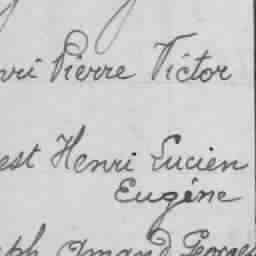 nri Pierre Victor
est Henri Lucien
Eugène
eph Amand Georges